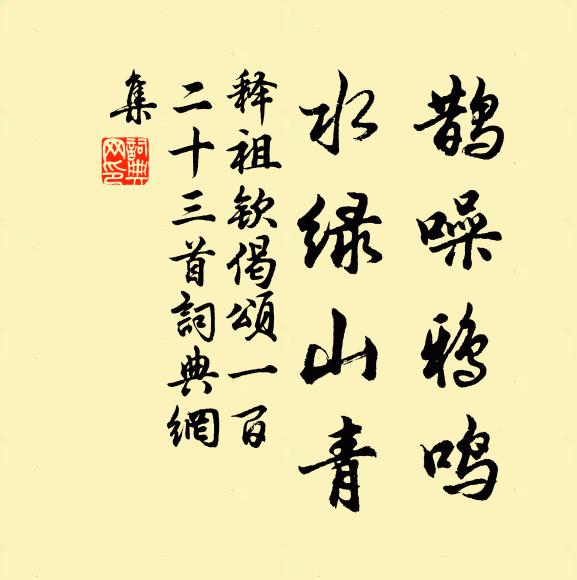 鹊噪鸦鸣
水绿山青
释祖钦偈颂一百
二十三首词典網
集
詞典網印